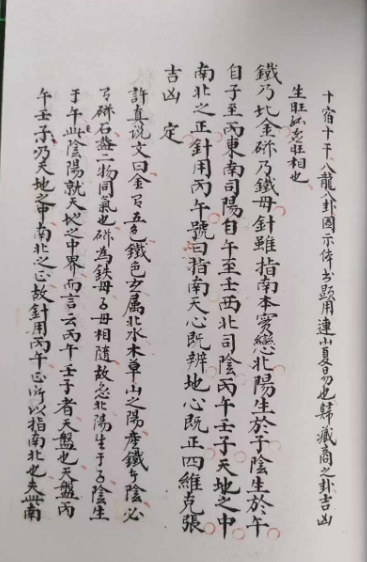 十宿十干八龍八卦圖示体书顕用連山夏易也歸藏商之卦吉凶
生旺旺相也
鐵乃北金砵乃鐵母針雖指南本實戀北陽生於子陰生於午
自子至丙東南司陽自午至壬西北司陰丙午壬子天地之中
南北之正針用丙午號曰指南天心既辨地心既正四維克張
吉凶定
許真说文曰金有五色鐵色玄属北水木草山之陽產鐵于陰必
有砵石盖二物同氣也砵為鉄母子母相隨故恋北陽生于子陰生
于午此陰陽就天地之中界而言云丙午壬子者天盤也天盤丙
午壬子乃天地之中南北之正故針用丙午正所以指南北也夫此南